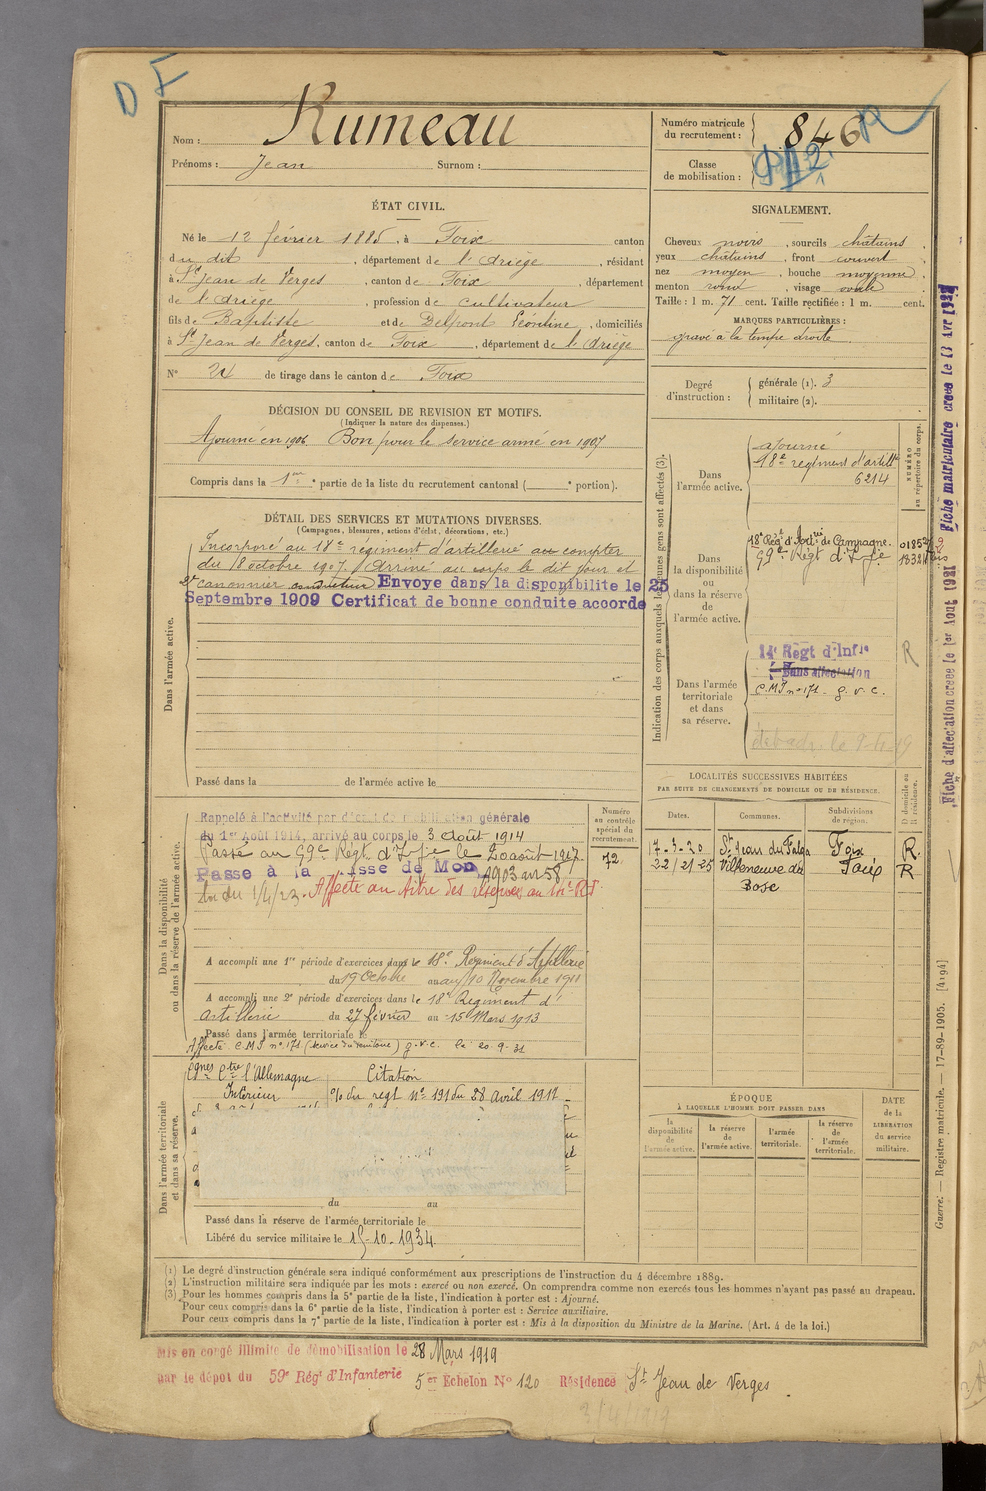 D F
Nom : Rumeau
Prénoms : Jean Surnom :
Numéro matricule du recrutement : 846 R
Classe de mobilisation :
ÉTAT CIVIL.
Né le 12 février 1885, à Foix canton
du dit, département de l'Ariège, résidant
à St Jean de Verges, canton de Foix, département
de l'Ariège, profession de cultivateur
fils de Baptiste et de Delpont Léontine, domiciliés
à St Jean de Verges, canton de Foix, département de l'Ariège
N° 24 de tirage dans le canton de Foix
SIGNALEMENT.
Cheveux noirs, sourcils châtains,
yeux châtains, front couvert,
nez moyen, bouche moyenne,
menton rond, visage ovale
Taille : 1 m. 71 cent. Taille rectifiée : 1 m. cent.
MARQUES PARTICULIÈRES :
gravé à la tempe droite
Degré d'instruction : générale (1). 3
militaire (2).
DÉCISION DU CONSEIL DE REVISION ET MOTIFS.
(Indiquer la nature des dispenses.)
Ajourné en 1906 Bon pour le service armé en 1907
Compris dans la 1ère partie de la liste du recrutement cantonal ( e portion).
DÉTAIL DES SERVICES ET MUTATIONS DIVERSES.
(Campagnes, blessures, actions d'éclat, décorations, etc.)
Dans l'armée active.
Incorporé au 18e régiment d'artillerie au compter
du 18 octobre 1907. Arrivé au corps le dit jour et
2e canonnier conducteur Envoye dans la disponibilite le 25
Septembre 1909 Certificat de bonne conduite accorde
Passé dans la de l'armée active le
Indication des corps auxquels les jeunes gens sont affectés (3).
NUMÉRO au répertoire du corps.
Dans l'armée active.
ajourné
18e regiment d'artillie
6214
Dans la disponibilité ou dans la réserve de l'armée active.
18e Régt d'Artrie de Campagne.
59e Régt d'Infie
Dans l'armée territoriale et dans sa réserve.
14e Régt d'Infie
Sans affectation
C.M.I n° 171 - g. v. c.
R
LOCALITÉS SUCCESSIVES HABITÉES
PAR SUITE DE CHANGEMENTS DE DOMICILE OU DE RÉSIDENCE.
Dates. Communes. Subdivisions de région. D domicile ou R résidence.
17-3-20 St Jean du Falga Foix R.
22/21-25 Villeneuve du Bosc Foix R
Dans la disponibilité ou dans la réserve de l'armée active.
Numéro au contrôle spécial du recrutement.
72
Rappelé à l'activité par décret de mobilisation générale
du 1er Août 1914, arrivé au corps le 3 Août 1914
Passé au 59e Régt d'Infie le 20 août 1917.
Passe à la classe de Mon 1903 art 58
Loi du 1/4/23. Affecté au titre des réserves au
A accompli une 1re période d'exercices dans le 18e Régiment d'Artillerie
du 19 Octobre au 10 Novembre 1911
A accompli une 2e période d'exercices dans le 18e Régiment d'
artillerie du 27 février au 15 Mars 1913
Passé dans l'armée territoriale le
Affecté C.M.I n° 171 (Service du territoire) g.v.c. le 20-9-31
Dans l'armée territoriale et dans sa réserve.
Cgnes Ctre l'Allemagne Citation
Intérieur o/o du regt N° 191 du 28 avril 1917
du au
Passé dans la réserve de l'armée territoriale le
Libéré du service militaire le 15-10-1934.
ÉPOQUE
À LAQUELLE L'HOMME DOIT PASSER DANS
la disponibilité de l'armée active. la réserve de l'armée active. l'armée territoriale. la réserve de l'armée territoriale.
DATE de la LIBÉRATION du service militaire.
(1) Le degré d'instruction générale sera indiqué conformément aux prescriptions de l'instruction du 4 décembre 1889.
(2) L'instruction militaire sera indiquée par les mots : exercé ou non exercé. On comprendra comme non exercés tous les hommes n'ayant pas passé au drapeau.
(3) Pour les hommes compris dans la 5e partie de la liste, l'indication à porter est : Ajourné.
Pour ceux compris dans la 6e partie de la liste, l'indication à porter est : Service auxiliaire.
Pour ceux compris dans la 7e partie de la liste, l'indication à porter est : Mis à la disposition du Ministre de la Marine. (Art. 4 de la loi.)
Mis en congé illimité de démobilisation le 28 Mars 1919
par le dépôt du 59e Régt d'Infanterie 5er Echelon N° 120 Résidence St Jean de Verges.
3/4/1919
Fiche d'affectation creee le 1er Aout 1921 Fiche matriculaire creee le 13 Avr 192
Guerre. — Registre matricule. — 17-89-1905. [4194]